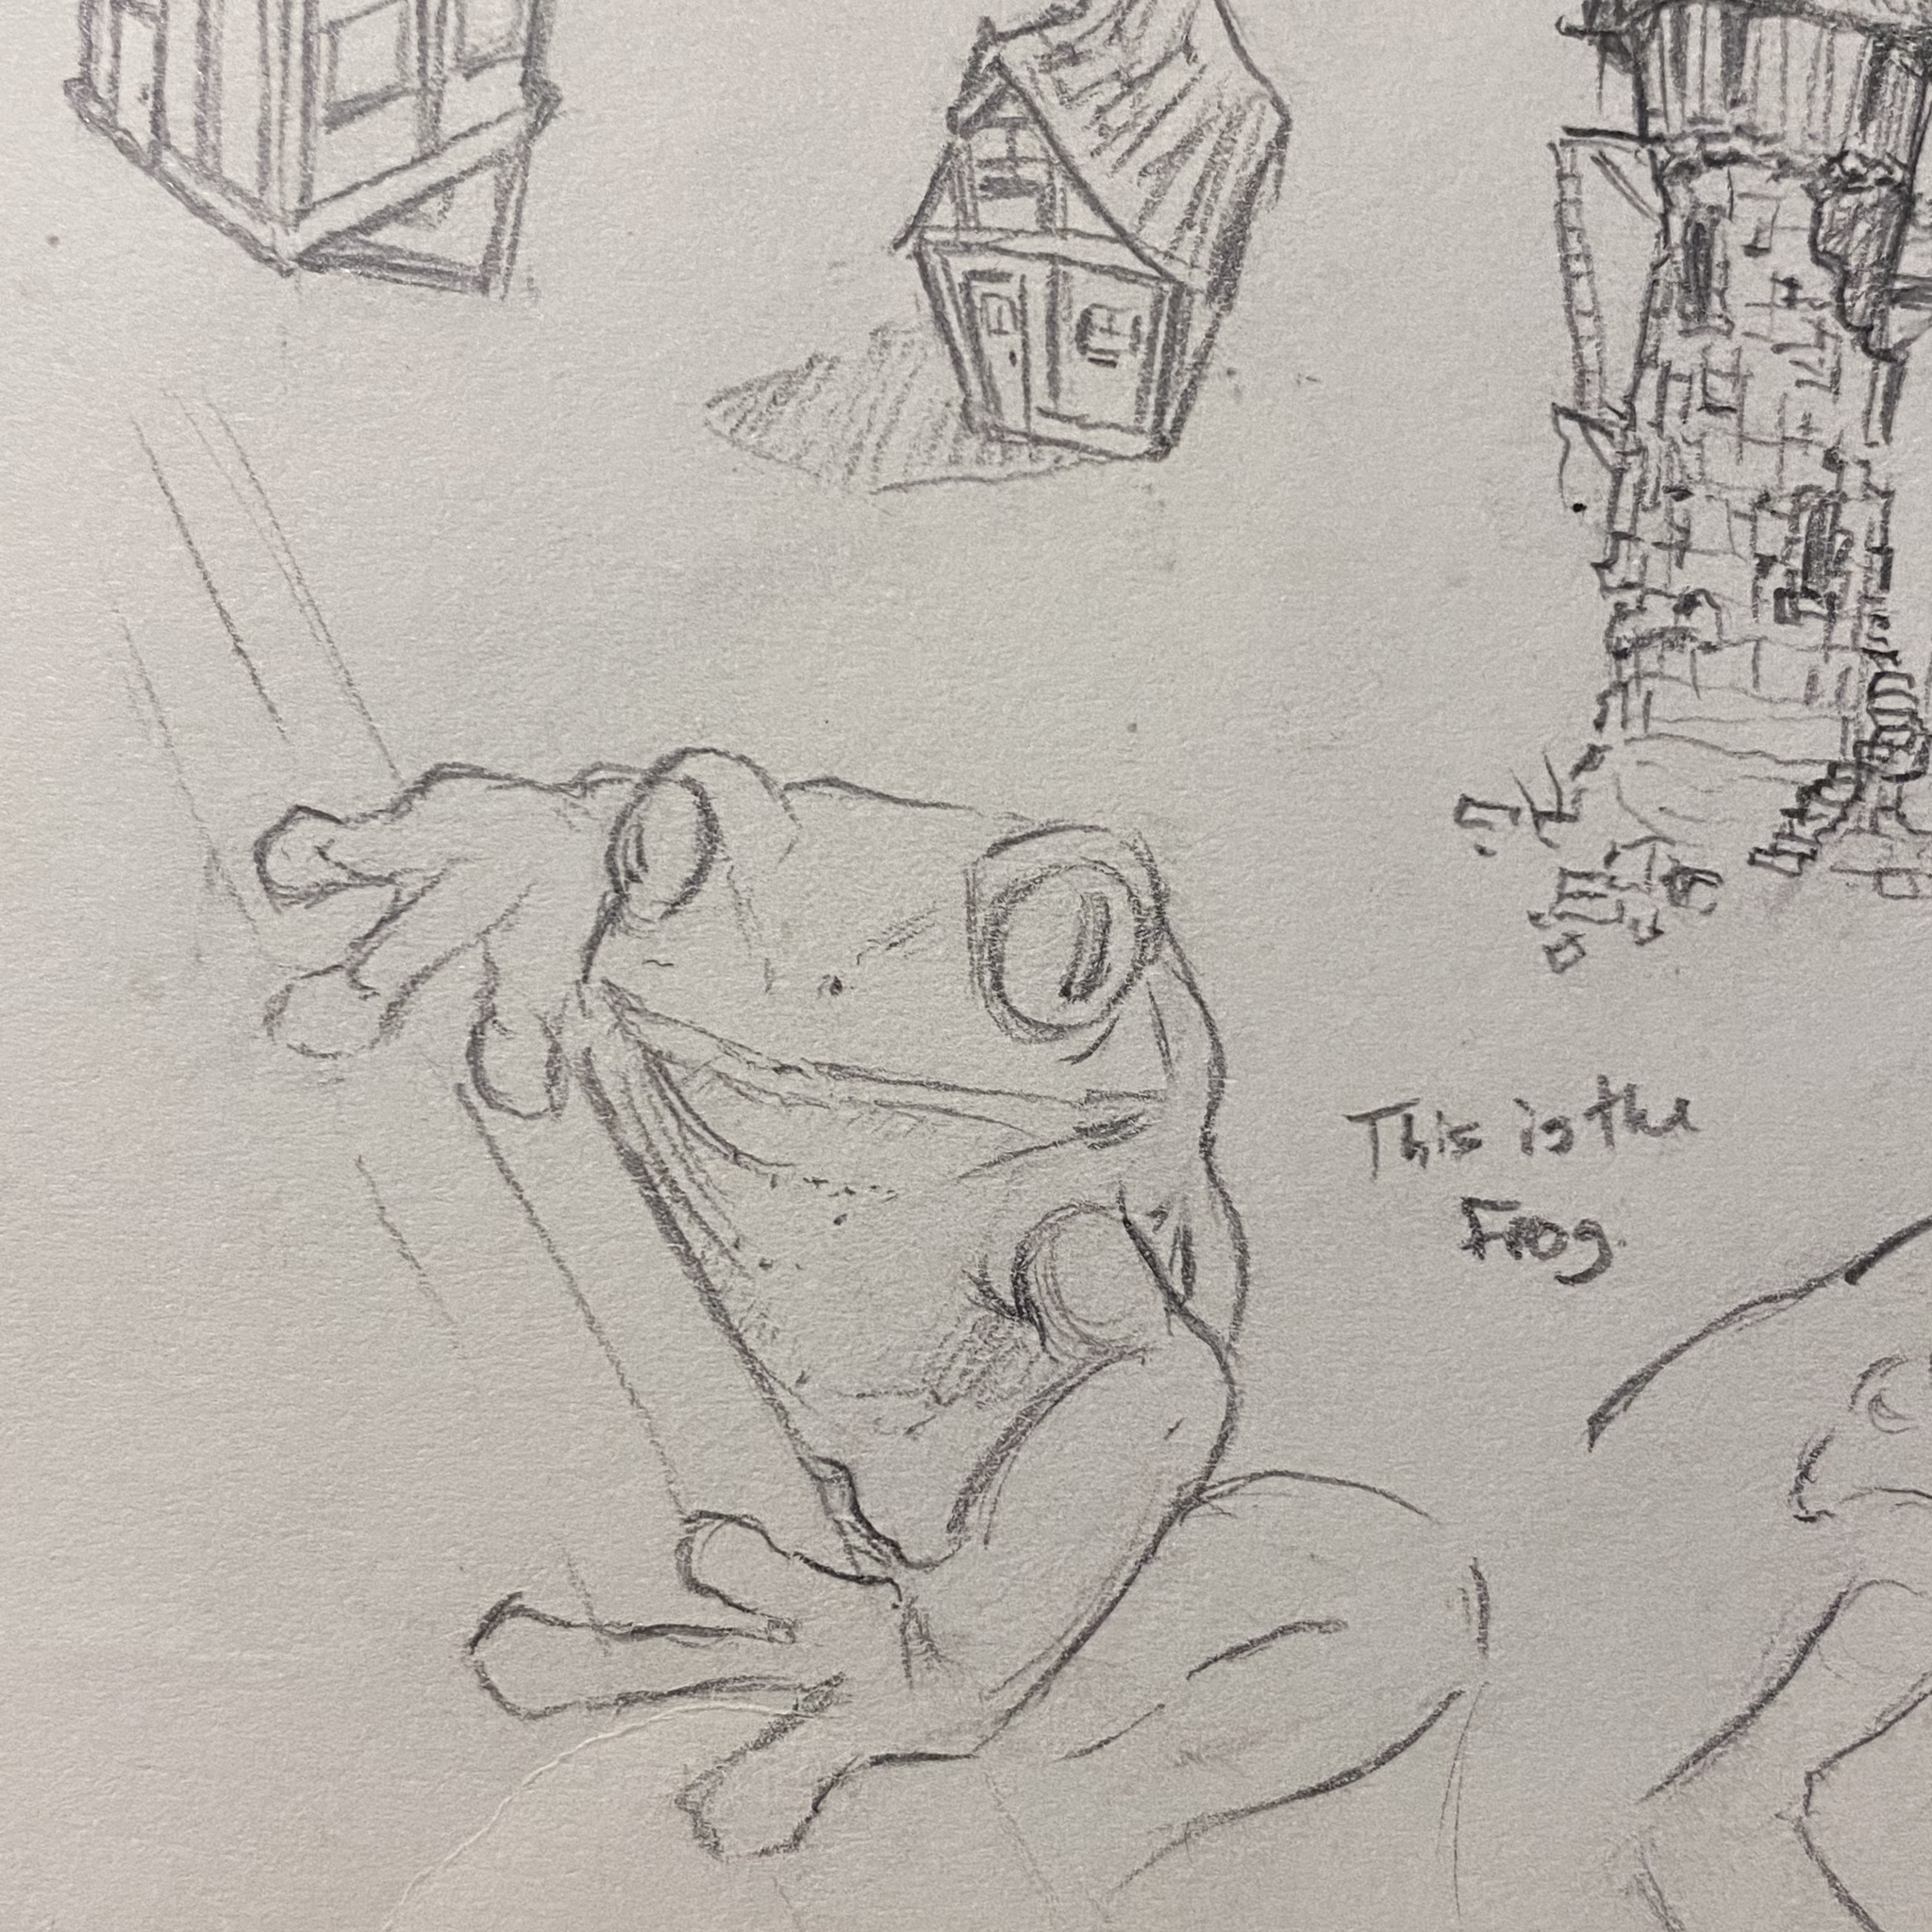 This is the
Frog.